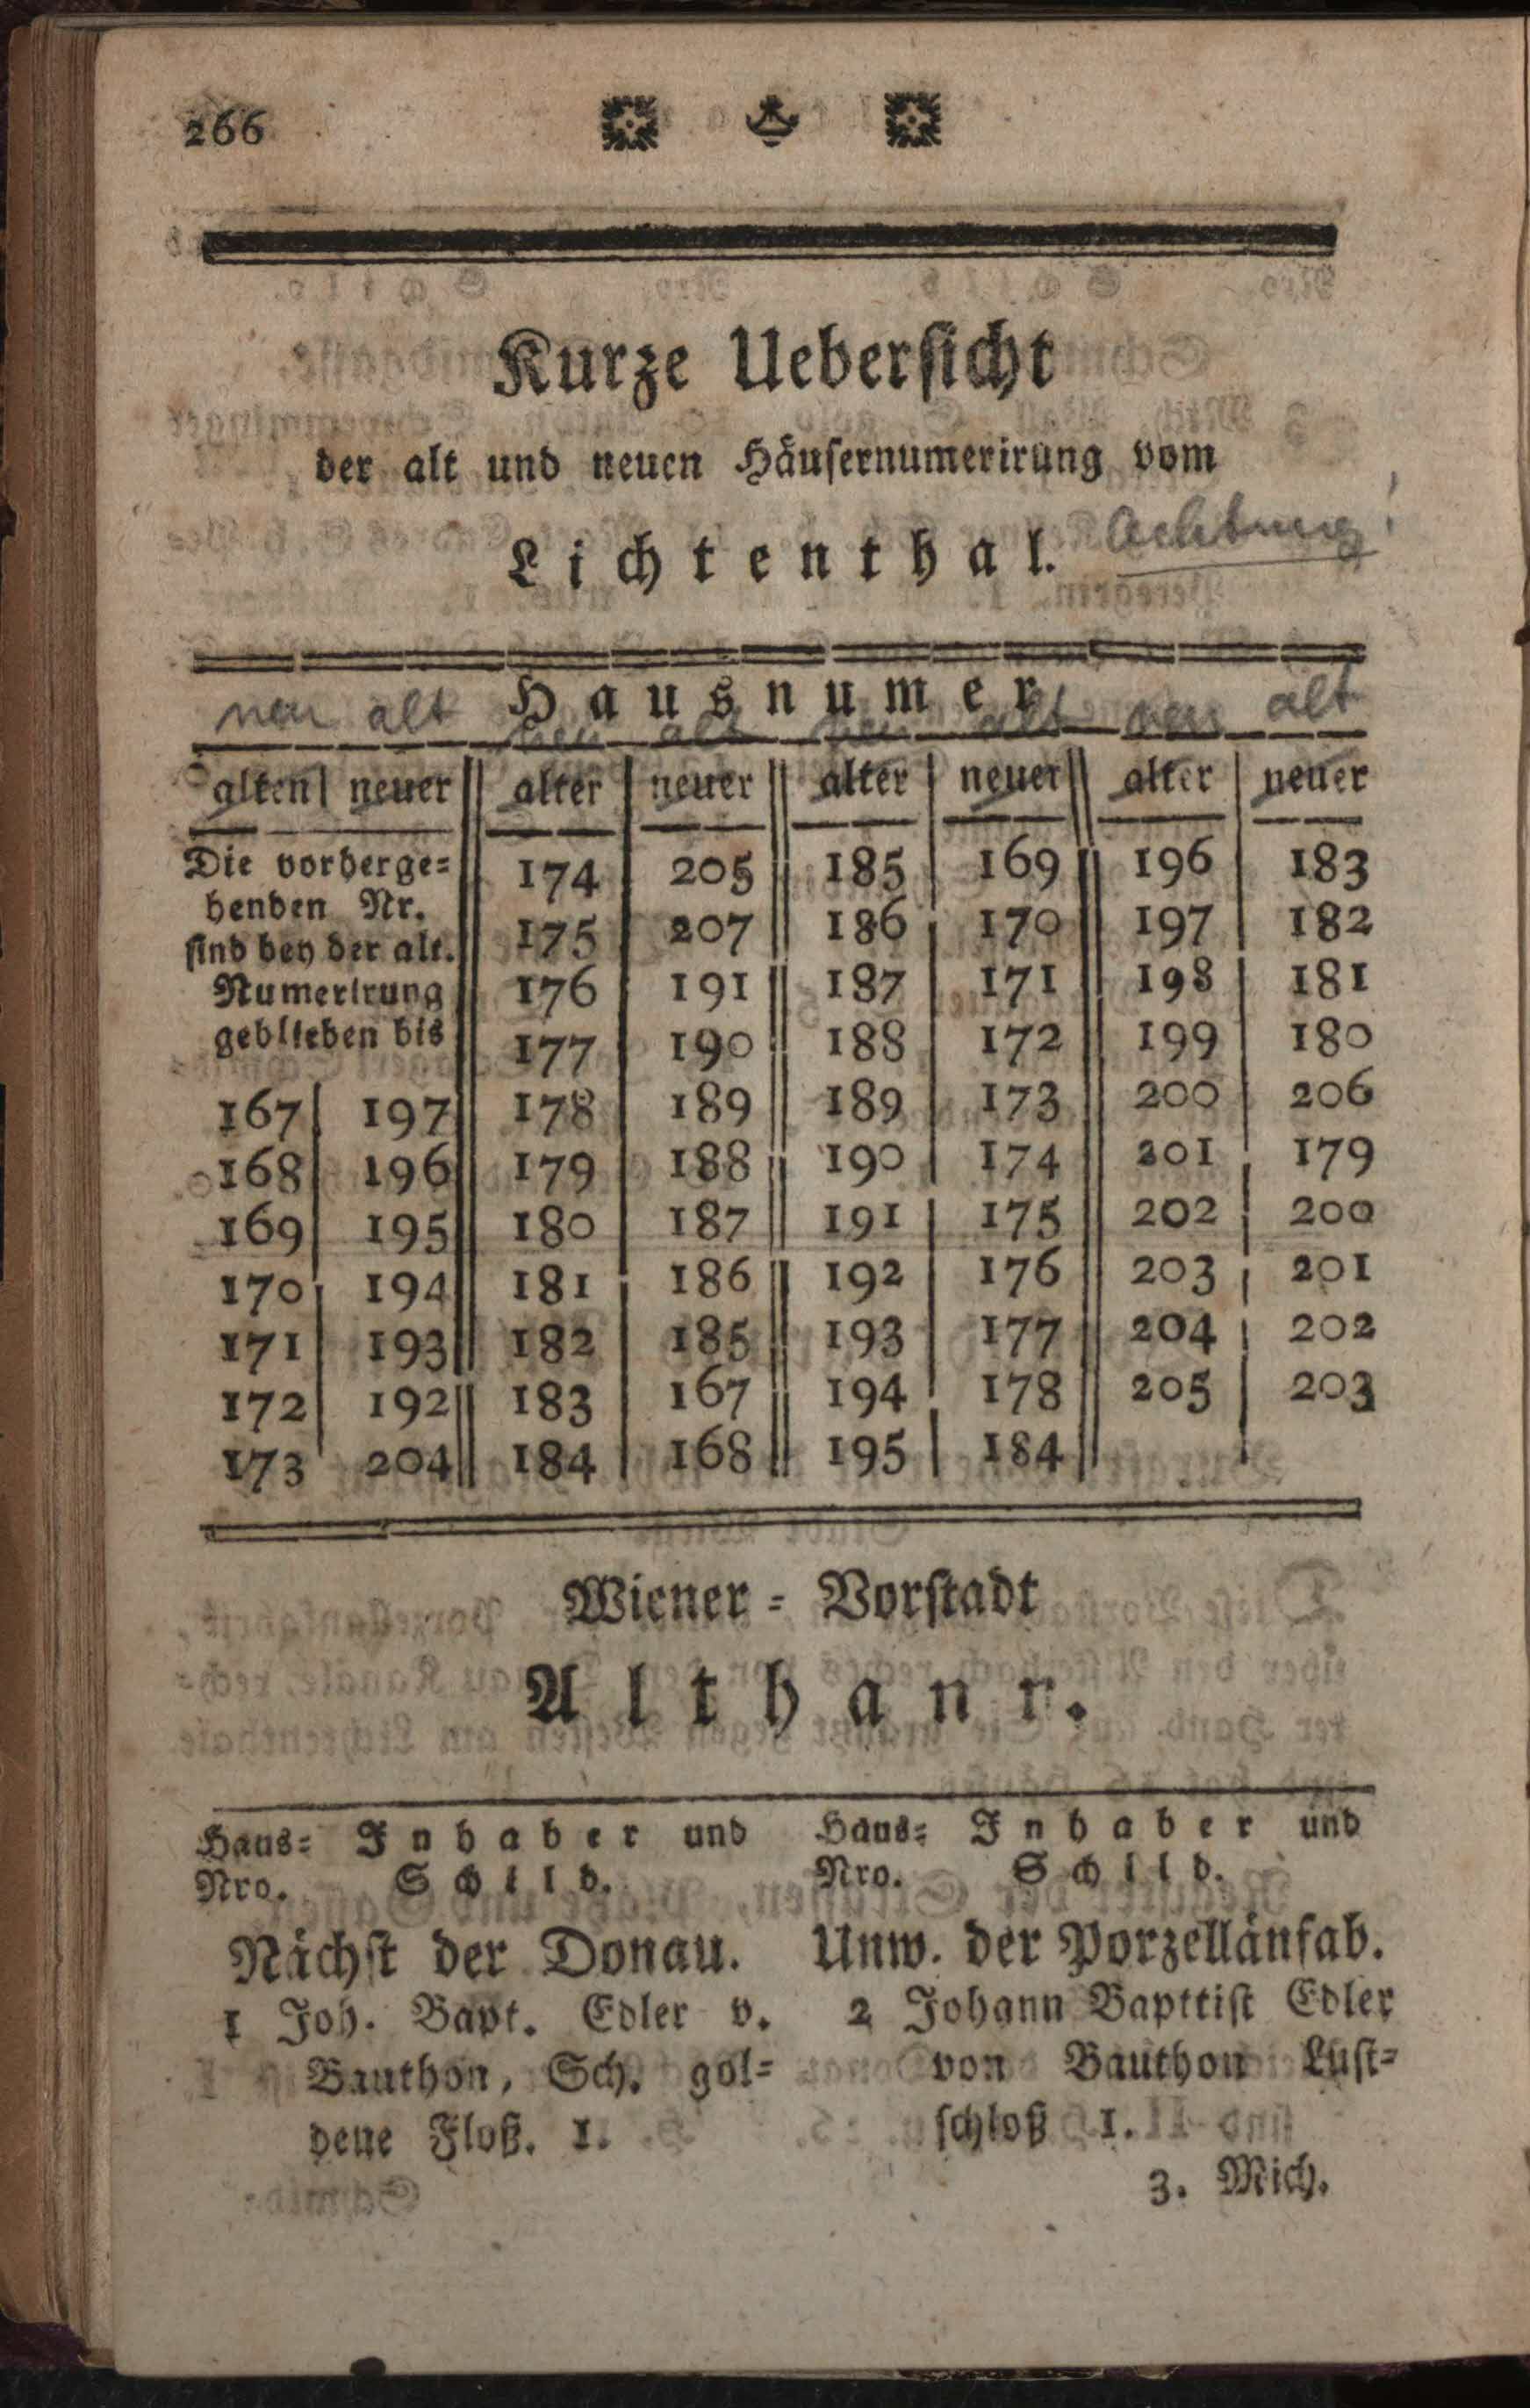 266
Kurze Uebersicht
der alt und neuen Häusernumerirung vom
Lichtenthal. Achtung!
Hausnumer
neu alt neu alt neu alt neu alt
alten neuer alter neuer alter neuer alter neuer
Die vorherge=
henden Nr.
sind bey der alt.
Numerirung
geblieben bis
174 205 185 169 196 183
175 207 186 170 197 182
176 191 187 171 198 181
177 190 188 172 199 180
167 197 178 189 189 173 200 206
168 196 179 188 190 174 201 179
169 195 180 187 191 175 202 200
170 194 181 186 192 176 203 201
171 193 182 185 193 177 204 202
172 192 183 167 194 178 205 203
173 204 184 168 195 184
Wiener = Vorstadt
Althann.
Haus= Inhaber und
Nro. Schild.
Nächst der Donau.
1 Joh. Bapt. Edler v.
Bauthon, Sch. gol=
dene Floß. 1.
Haus= Inhaber und
Nro. Schild.
Unw. der Porzellänfab.
2 Johann Bapttist Edler
von Bauthon Lust=
schloß 1.
3. Mich.